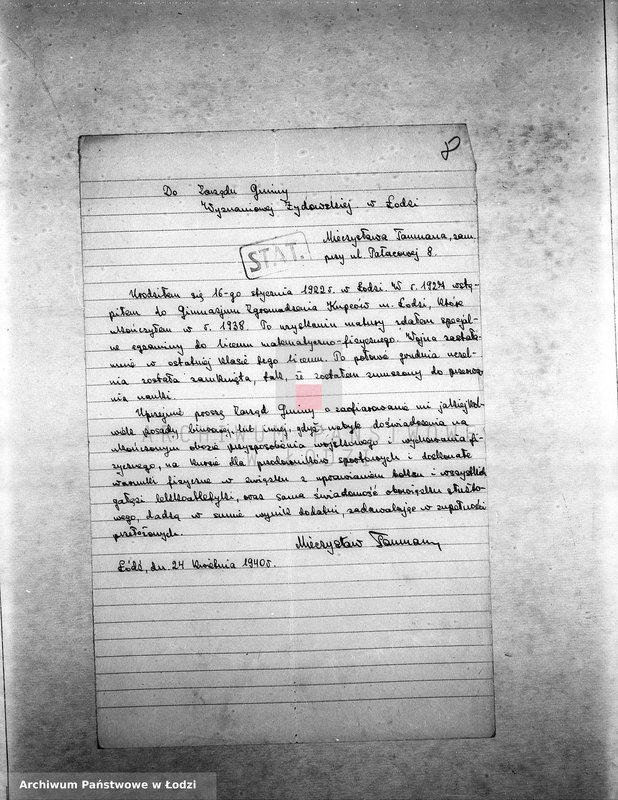 8
Do Zarządu Gminy
Wyznaniowej Żydowskiej w Łodzi
STAT.
Mieczysława Taumana, zam.
przy ul. Pałacowej 8.
Urodziłem się 16-go stycznia 1922 r. w Łodzi. W r. 1927 wstą-
piłem do Gimnazjum Zgromadzenia Kupców m. Łodzi, które
ukończyłem w r. 1938. Po uzyskaniu matury zdałem specjal-
ne egzaminy do liceum matematyczno-fizycznego. Wojna zastała
mnie w ostatniej klasie tego liceum. Po połowie grudnia uczel-
nia została zamknięta, tak, że zostałem zmuszony do przerwa-
nia nauki.
Uprzejmie proszę Zarząd Gminy o zaofiarowanie mi jakiejkol-
wiek posady biurowej, lub innej, gdyż nabyte doświadczenia na
ukończonym obozie przysposobienia wojskowego i wychowania fi-
zycznego, na kursie dla przodowników sportowych i doskonałe
warunki fizyczne w związku z uprawianiem boksu i wszystkich
gałęzi lekkoatletyki, oraz sama świadomość obowiązku służbo-
wego, dadzą w sumie wynik dodatni zadawalające w zupełności
przełożonych.
Mieczysław Tauman
Łódź, dn. 24 kwietnia 1940 r.
ARCHIWUM PAŃSTWOWE
W ŁODZI
Archiwum Państwowe w Łodzi